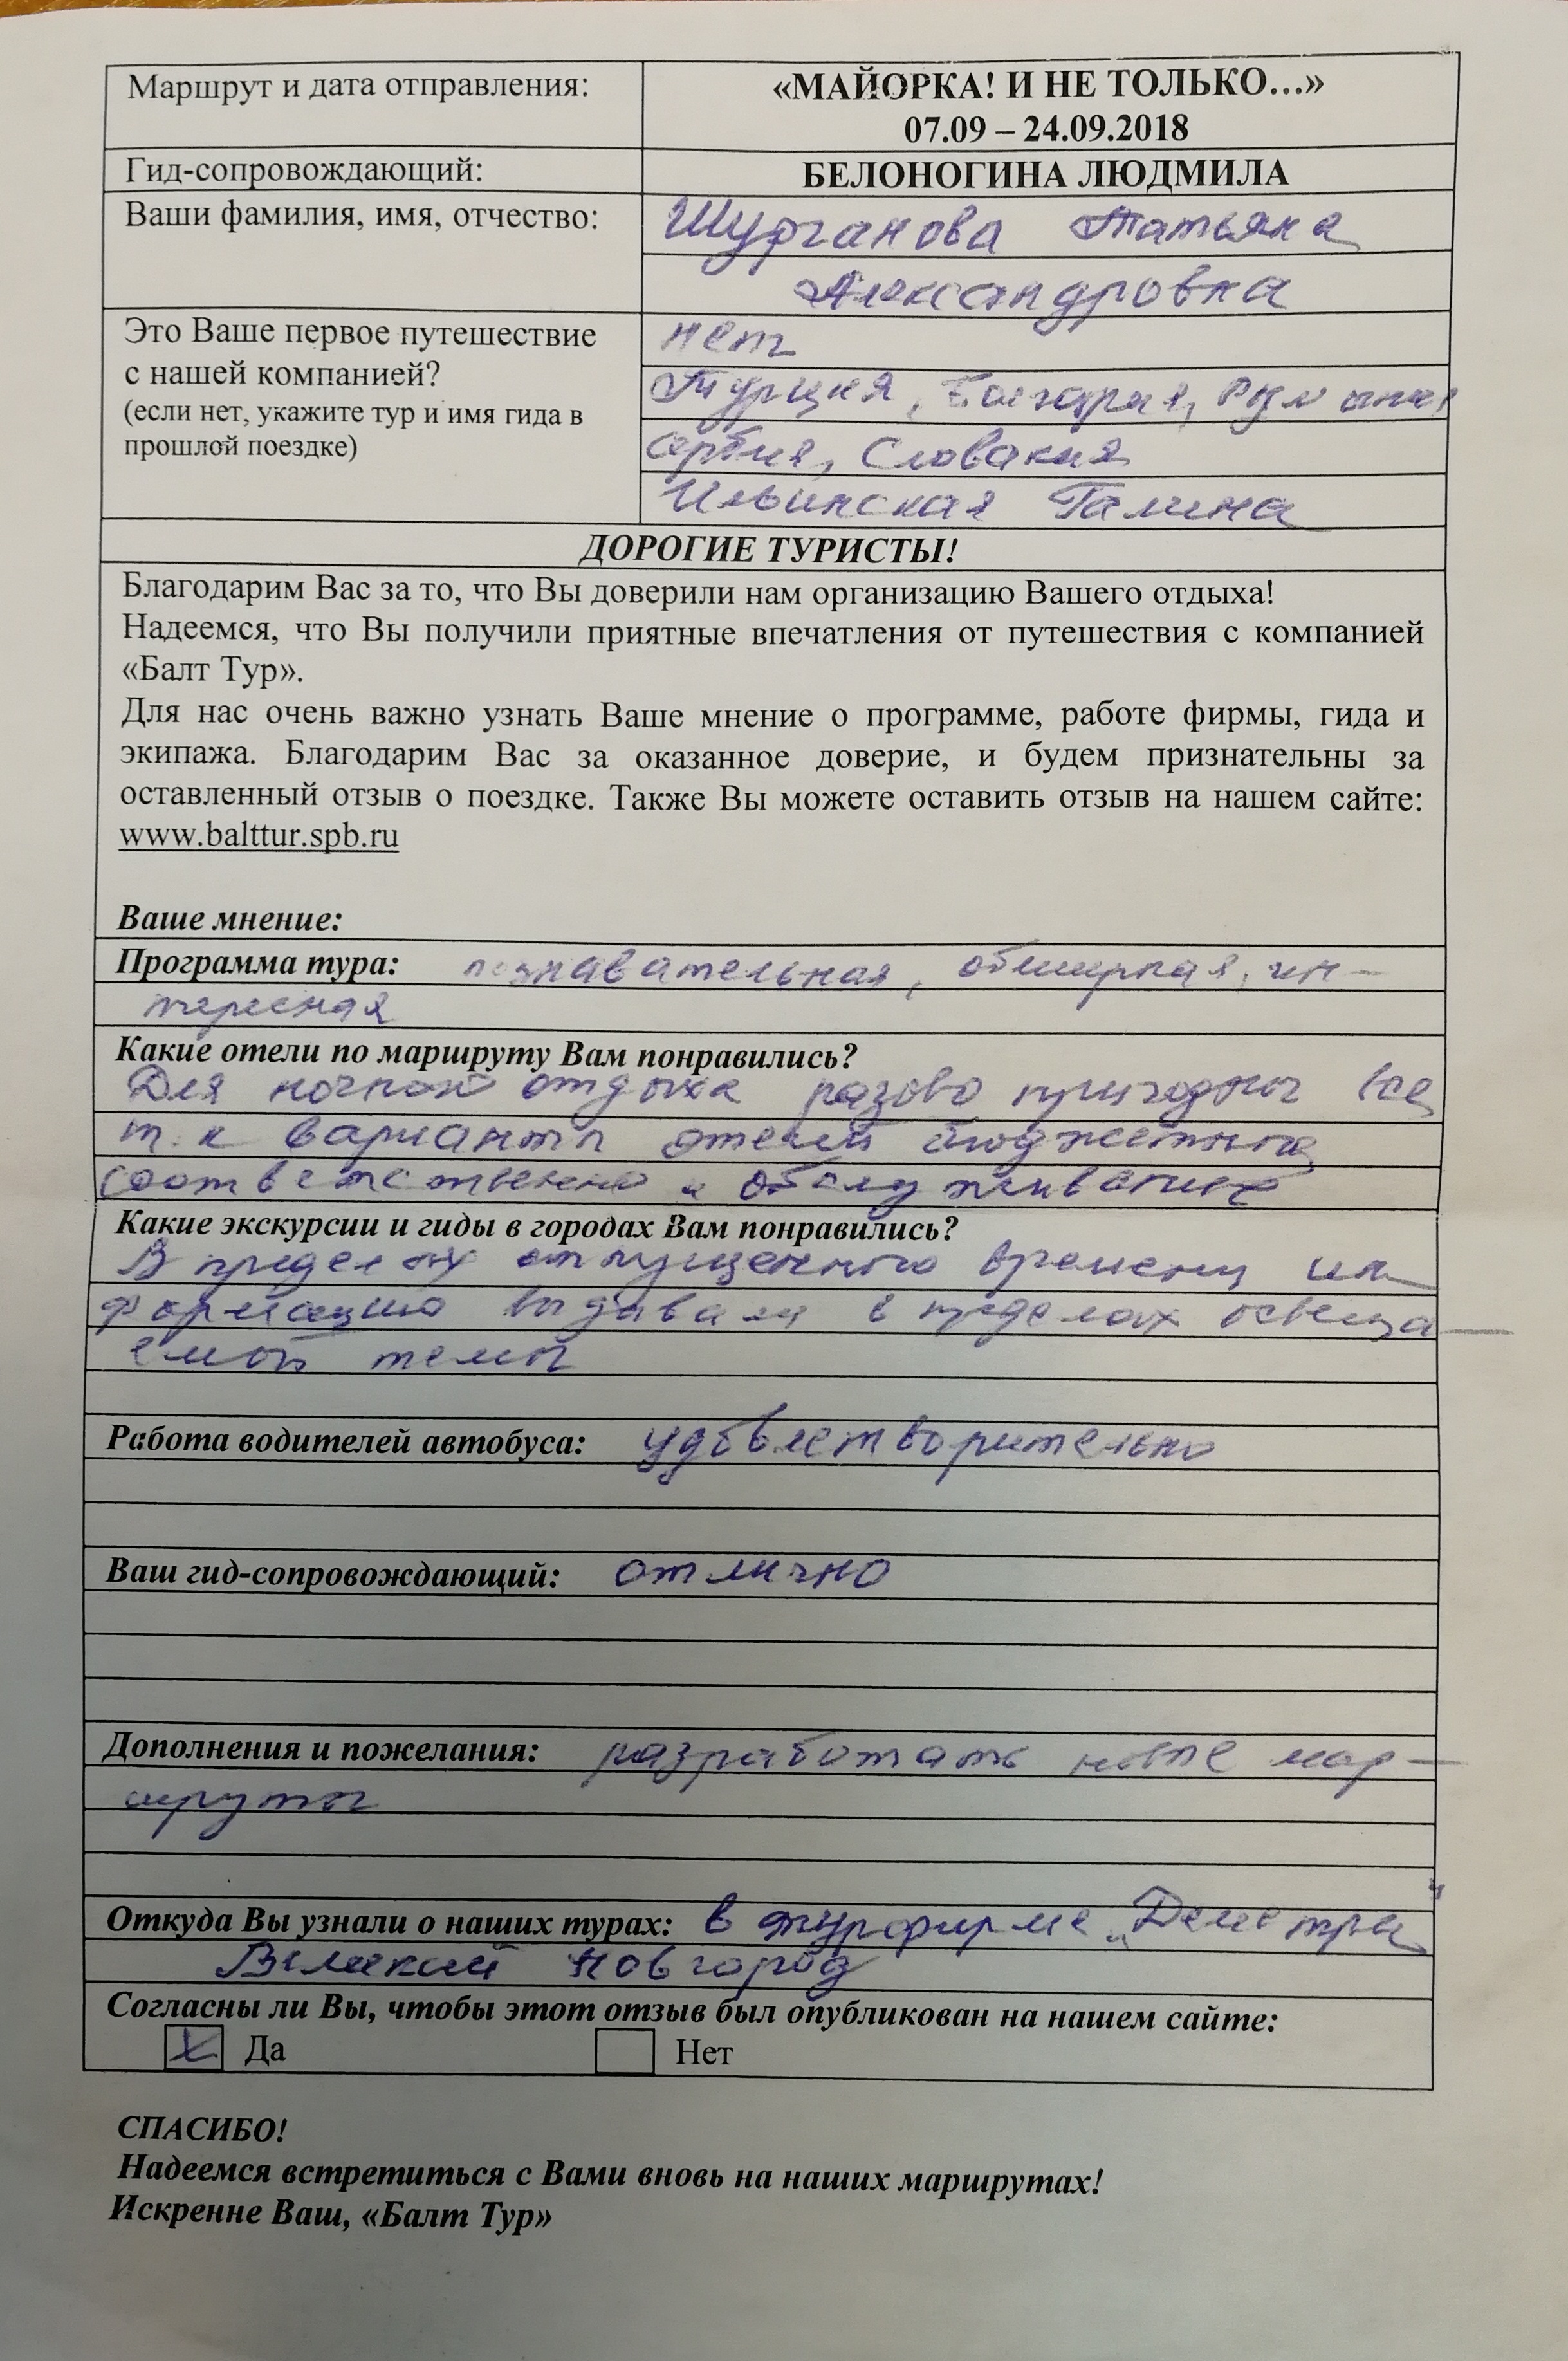 Маршрут и дата отправления:
«МАЙОРКА! И НЕ ТОЛЬКО…»
07.09 – 24.09.2018
Гид-сопровождающий:
БЕЛОНОГИНА ЛЮДМИЛА
Ваши фамилия, имя, отчество:
Татьяна
Александровна
Это Ваше первое путешествие
с нашей компанией?
(если нет, укажите тур и имя гида в
прошлой поездке)
нет
Турция, Болгария, Румыния
Сербия, Словакия
Ильинская Галина
ДОРОГИЕ ТУРИСТЫ!
Благодарим Вас за то, что Вы доверили нам организацию Вашего отдыха!
Надеемся, что Вы получили приятные впечатления от путешествия с компанией
«Балт Тур».
Для нас очень важно узнать Ваше мнение о программе, работе фирмы, гида и
экипажа. Благодарим Вас за оказанное доверие, и будем признательны за
оставленный отзыв о поездке. Также Вы можете оставить отзыв на нашем сайте:
www.balttur.spb.ru
Ваше мнение:
Программа тура: познавательная, обширная, ин-
тересная
Какие отели по маршруту Вам понравились?
Для ночного отдыха разово пригодны все
т.к варианты отелей бюджетные
соответственно и обслуживание
Какие экскурсии и гиды в городах Вам понравились?
В пределах отпущенного времени ин-
формацию выдавали в пределах освеща-
емой темы
Работа водителей автобуса: удовлетворительно
Ваш гид-сопровождающий: отлично
Дополнения и пожелания: разработать новые мар-
шруты
Откуда Вы узнали о наших турах: в турфирме „Деметра"
Великий Новгород
Согласны ли Вы, чтобы этот отзыв был опубликован на нашем сайте:
Да Нет
СПАСИБО!
Надеемся встретиться с Вами вновь на наших маршрутах!
Искренне Ваш, «Балт Тур»